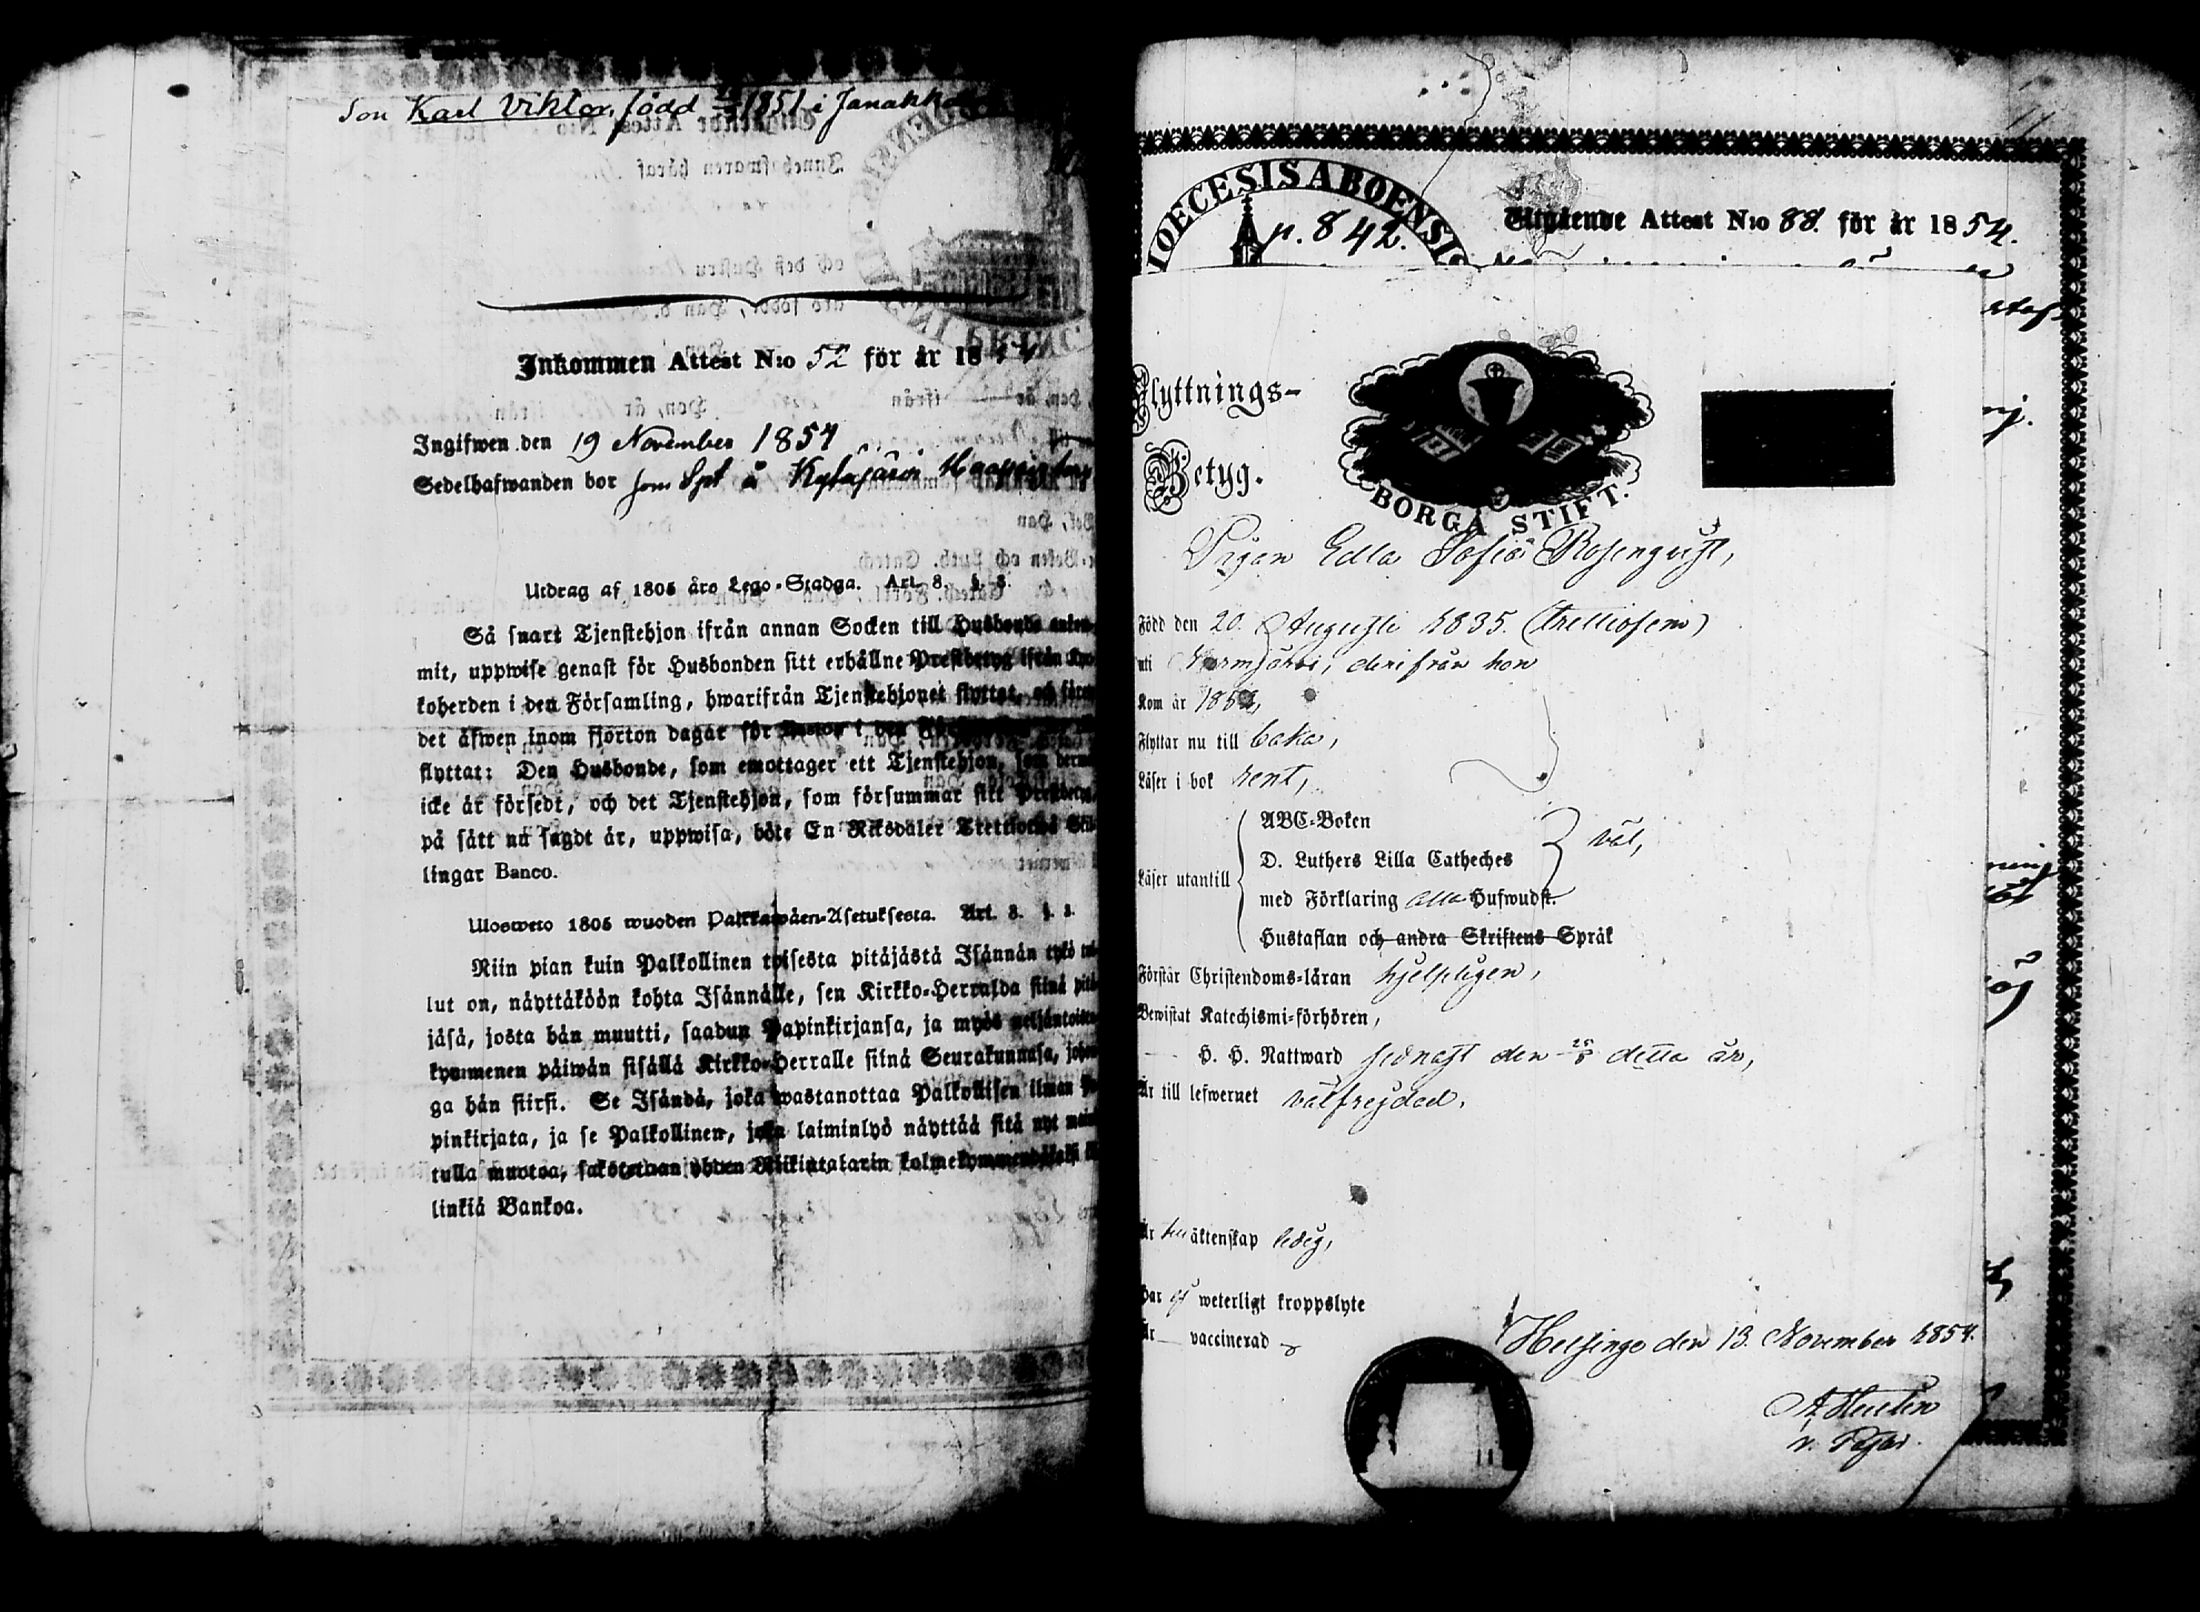 Son Karl Viktor, född 1851 i Janakkala
Inkommen Attest N:o 52 för år 18
Ingifwen den 19 November 1854
Sedelhafwanden bor som Spt å Kytäjärvi
Utdrag af 1805 års Lego-Stadga. Art. 8. §. 3.
Så snart Tjenstehjon ifrån annan Socken till Husbonde
mit, uppwise genast för Husbonden sitt erhållne Prestbetyg ifrån
koherden i den Församling, hwarifrån Tjenstehjonet flyttat, och
det äfwen inom fjorton dagar för i den
flyttat: Den Husbonde, som emottager ett Tjenstehjon, som
icke är försedt, och det Tjenstehjon, som försummar sitt Prestbetyg,
på sätt nu sagdt är, uppwisa, böte En Riksdaler Trettiotwå
lingar Banco.
Ulosweto 1805 wuoden Palkkawäen-Asetuksesta. Art. 8. §. 3.
Niin pian kuin Palkollinen toisesta pitäjästä Isännän tykö
lut on, näyttäköön kohta Isännälle, sen Kirkko-Herralda siinä
jäsä, josta hän muutti, saadun Papinkirjansa, ja myös
kymmenen päiwän sisällä Kirkko-Herralle siinä Seurakunnasa,
ga hän siirsi. Se Isändä, joka wastanottaa Palkollisen ilman
pinkirjata, ja se Palkollinen, joka laiminlyö näyttää sitä nyt
tulla muotoa, sakotetaan yhden Riikintalarin
linkiä Bankoa.
DIOECESIS ABOENSIS
p. 842.
Utgående Attest N:o 88. för år 1854.
Flyttnings-
Betyg.
BORGÅ STIFT.
Pigan Edla Sofia Rosenqvist,
Född den 20. Augusti 1835. (trettiofem)
uti Nurmijärvi, derifrån hon
Kom år 1854,
Flyttar nu till baka,
Läser i bok rent,
Läser utantill
ABC-Boken
D. Luthers Lilla Catheches
med Förklaring alla Hufwudst.
väl,
Hustaflan och andra Skriftens Språk
Förstår Christendoms-läran hjelpligen,
Bewistat Katechismi-förhören,
H. H. Nattward sednast den detta år,
Är till lefwernet välfrejdad.
Är till äktenskap ledig,
Har ej weterligt kroppslyte
Är vaccinerad
Helsinge den 13. November 1854.